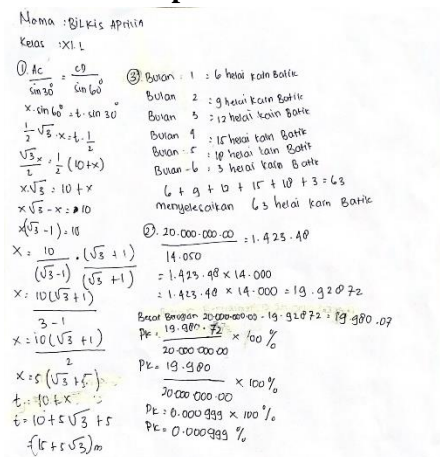 Nama : Bilkis Aprilia
Kelas : XI.1
① AC / sin 30° = CD / sin 60°
x · sin 60° = t · sin 30°
1/2 √3 · x = t · 1/2
√3x / 2 = 1/2 (10+x)
x√3 = 10 + x
x√3 - x = 10
x(√3 - 1) = 10
x = 10 / (√3 - 1) · (√3 + 1) / (√3 + 1)
x = 10(√3 + 1) / 3 - 1
x = 10(√3 + 1) / 2
x = 5(√3 + 5)
t = 10 + x
t = 10 + 5√3 + 5
= (15 + 5√3) m
③ Bulan 1 : 6 helai kain Batik
Bulan 2 : 9 helai kain Batik
Bulan 3 : 12 helai kain Batik
Bulan 4 : 15 helai kain Batik
Bulan 5 : 18 helai kain Batik
Bulan 6 : 3 helai kain Batik
6 + 9 + 12 + 15 + 18 + 3 = 63
menyelesaikan 63 helai kain Batik
②. 20.000.000.00 / 14.050 = 1.423.48
= 1.423.48 × 14.000
= 1.423.48 × 14.000 = 19.92872
Besar 20.000.000.00 - 19.92872 = 19.980.07
Pk = 19.980.72 / 20.000.000.00 × 100 %
Pk = 19.980 / 20.000.000.00 × 100 %
Pk = 0.000999 × 100 %
Pk = 0.000999 %